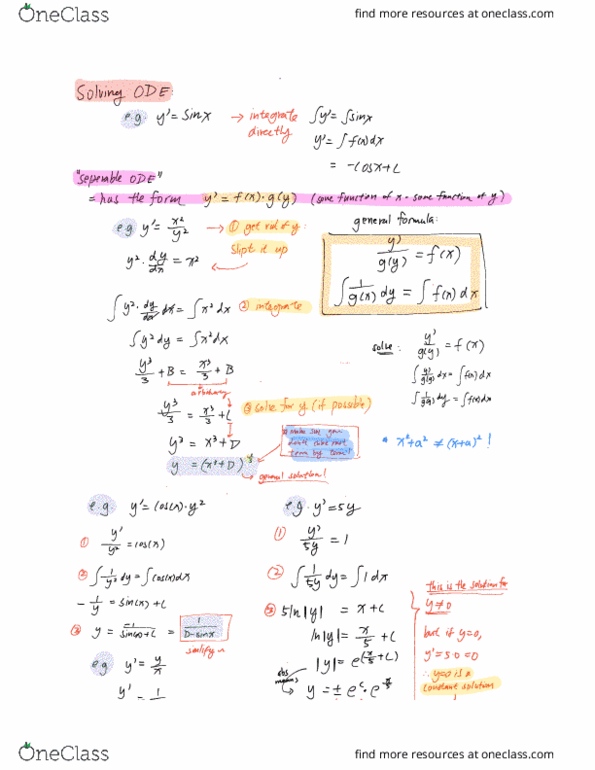 OneClass
find more resources at oneclass.com
Solving ODE:
e.g. y' = sinx → integrate directly ∫y' = ∫sinx
y' = ∫f(x)dx
= -cosx + C
"seperable ODE"
= has the form y' = f(x)·g(y) (some function of x · some function of y)
e.g y' = x²/y² → ① get rid of y: general formula:
y²·dy/dx = x² ← Slipt it up
y'/g(y) = f(x)
∫1/g(x) dy = ∫f(x)dx
∫y²·dy/dx dx = ∫x²dx ② integrate
∫y²dy = ∫x²dx
y³/3 + B = x³/3 + B
arbitrary
y³/3 = x³/3 + C ③ solve for y (if possible)
y³ = x³ + D
y = (x³+D)^⅓
make sure you don't cube root term by term!
general solution!
solve: y'/g(y) = f(x)
∫y'/g(y) dx = ∫f(x)dx
∫1/g(y) dy = ∫f(x)dx
* x²+a² ≠ (x+a)² !
e.g. y' = cos(x)·y²
① y'/y² = cos(x)
② ∫1/y² dy = ∫cos(x)dx
-1/y = sin(x) + C
③ y = -1/sin(x)+C = 1/D-sinx
e.g y' = y/x
y' = 1
e.g. y' = 5y
① y'/5y = 1
② ∫1/5y dy = ∫1dx
③ 5ln|y| = x + C
ln|y| = x/5 + C
|y| = e^(x/5 + C)
y = ± e^c · e^x/5
this is the solution for y≠0
but if y=0,
y' = 5·0 = 0
∴ y=0 is a constant solution
OneClass
find more resources at oneclass.com